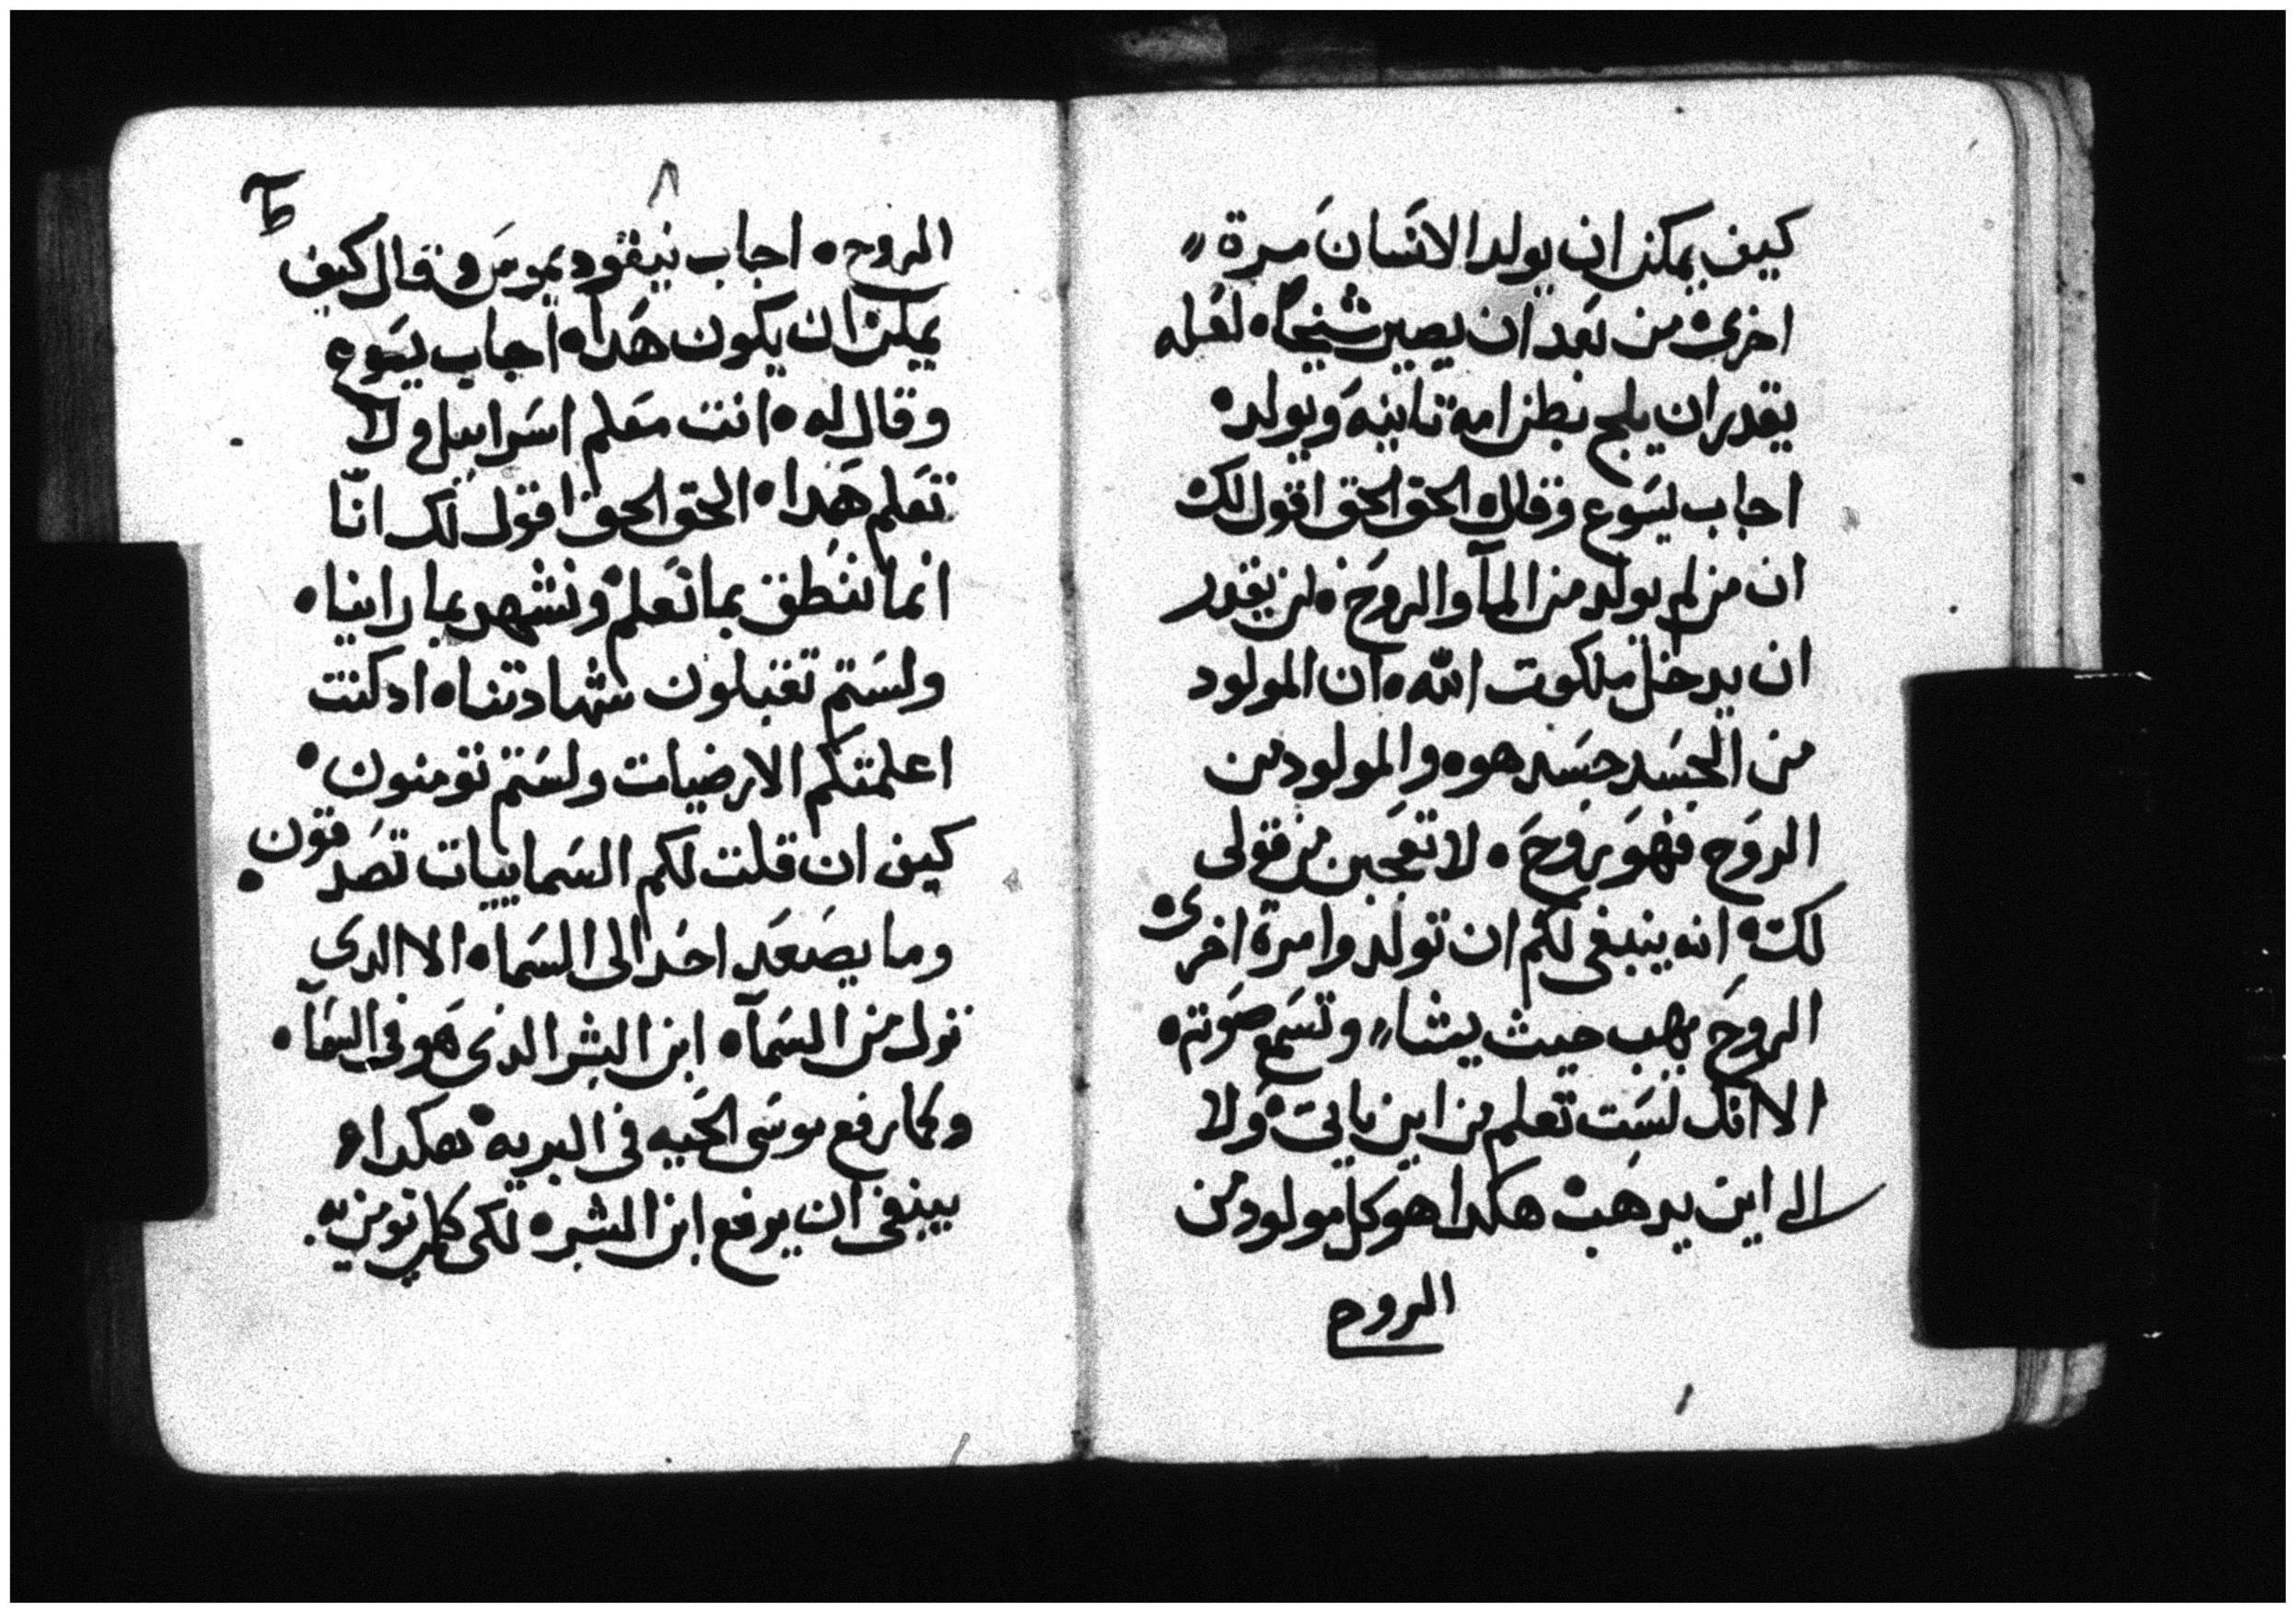 كيف يمكن ان يولد الانسان مرة
اخرى من بعد ان يصير شيخا ه لعله
يقدر ان يلج بطن امه تانيه ويولد ه
اجاب يسوع وقال له الحق الحق اقول لك
ان من لم يولد من المآ والروح ه لن يقدر
ان يدخل ملكوت الله ه ان المولود
من الجسد جسد هو ه والمولود من
الروح فهو روح ه لا تعجبن من قولى
لك ه انه ينبغى لكم ان تولدوا مرة اخرى ه
الروح يهب حيث يشا وتسمع صوته ه
الا انك لست تعلم من اين ياتى ه ولا
الى اين يدهب ه هكدا هو كل مولود من
الروح
٨
ط
الروح ه اجاب نيقوديموس وقال كيف
يمكن ان يكون هدا ه اجاب يسوع
وقال له ه انت معلم اسراييل ولا
تعلم هدا ه الحق الحق اقول لك انّا
انما ننطق بما نعلم ونشهد بما راينا ه
ولستم تقبلون شهادتنا ه اد كنت
اعلمتكم الارضيات ولستم تومنون ه
كيف ان قلت لكم السماييات تصدقون ه
وما يصعد احد الى السما ه الا الدى
نزل من السمآ ه ابن البشر الدى هو فى السمآ ه
وكما رفع موسى الحيه فى البريه ه هكدا
ينبغى ان يرفع ابن البشر ه لكى كلمن يومن به